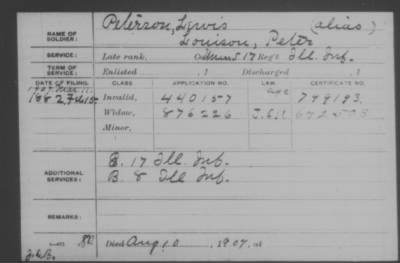 NAME OF SOLDIER: Peterson, Lewis (alias)
Louison, Peter
SERVICE: Late rank, Reg't Ill. Inf.
TERM OF SERVICE: Enlisted , 1 Discharged , 1
DATE OF FILING. CLASS. APPLICATION NO. LAW. CERTIFICATE NO.
Invalid, 440157 799193.
Widow, 876226
Minor,
ADDITIONAL SERVICES: E. 17 Ill. Inf.
B. 8 Ill Inf.
REMARKS:
Died Aug. 10, 1907, at